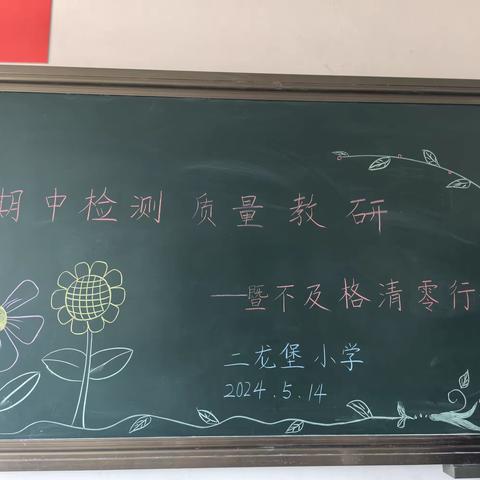 期中检测质量教研
——暨不及格清零行
二龙堡小学
2024.5.14